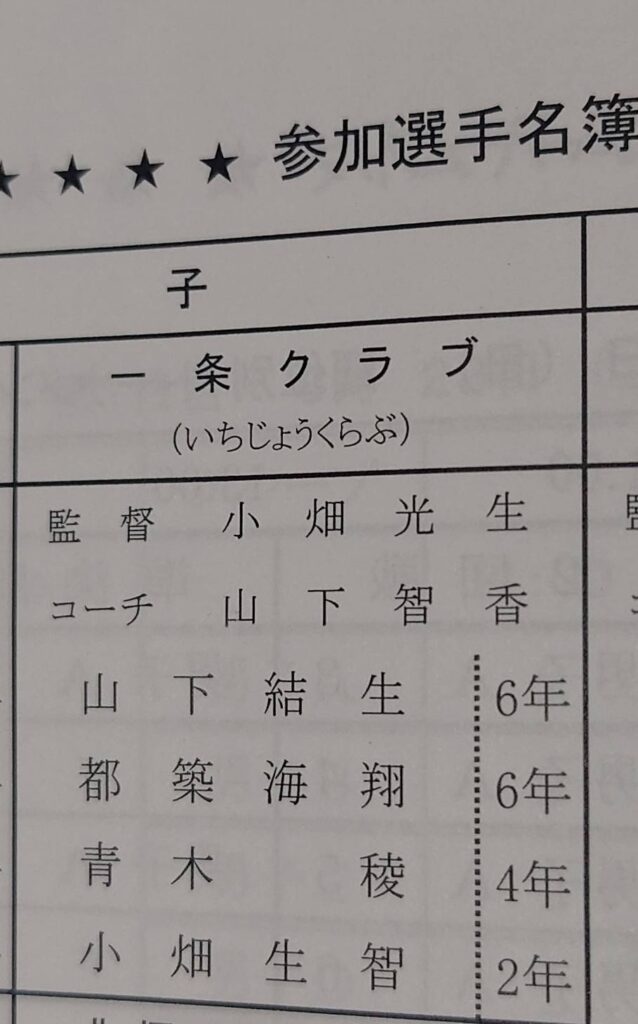 ★ ★ ★ ★ 参加選手名簿
子
一条クラブ
(いちじょうくらぶ)
監督 小畑光生
コーチ 山下智香
山下結生 6年
都築海翔 6年
青木 稜 4年
小畑生智 2年